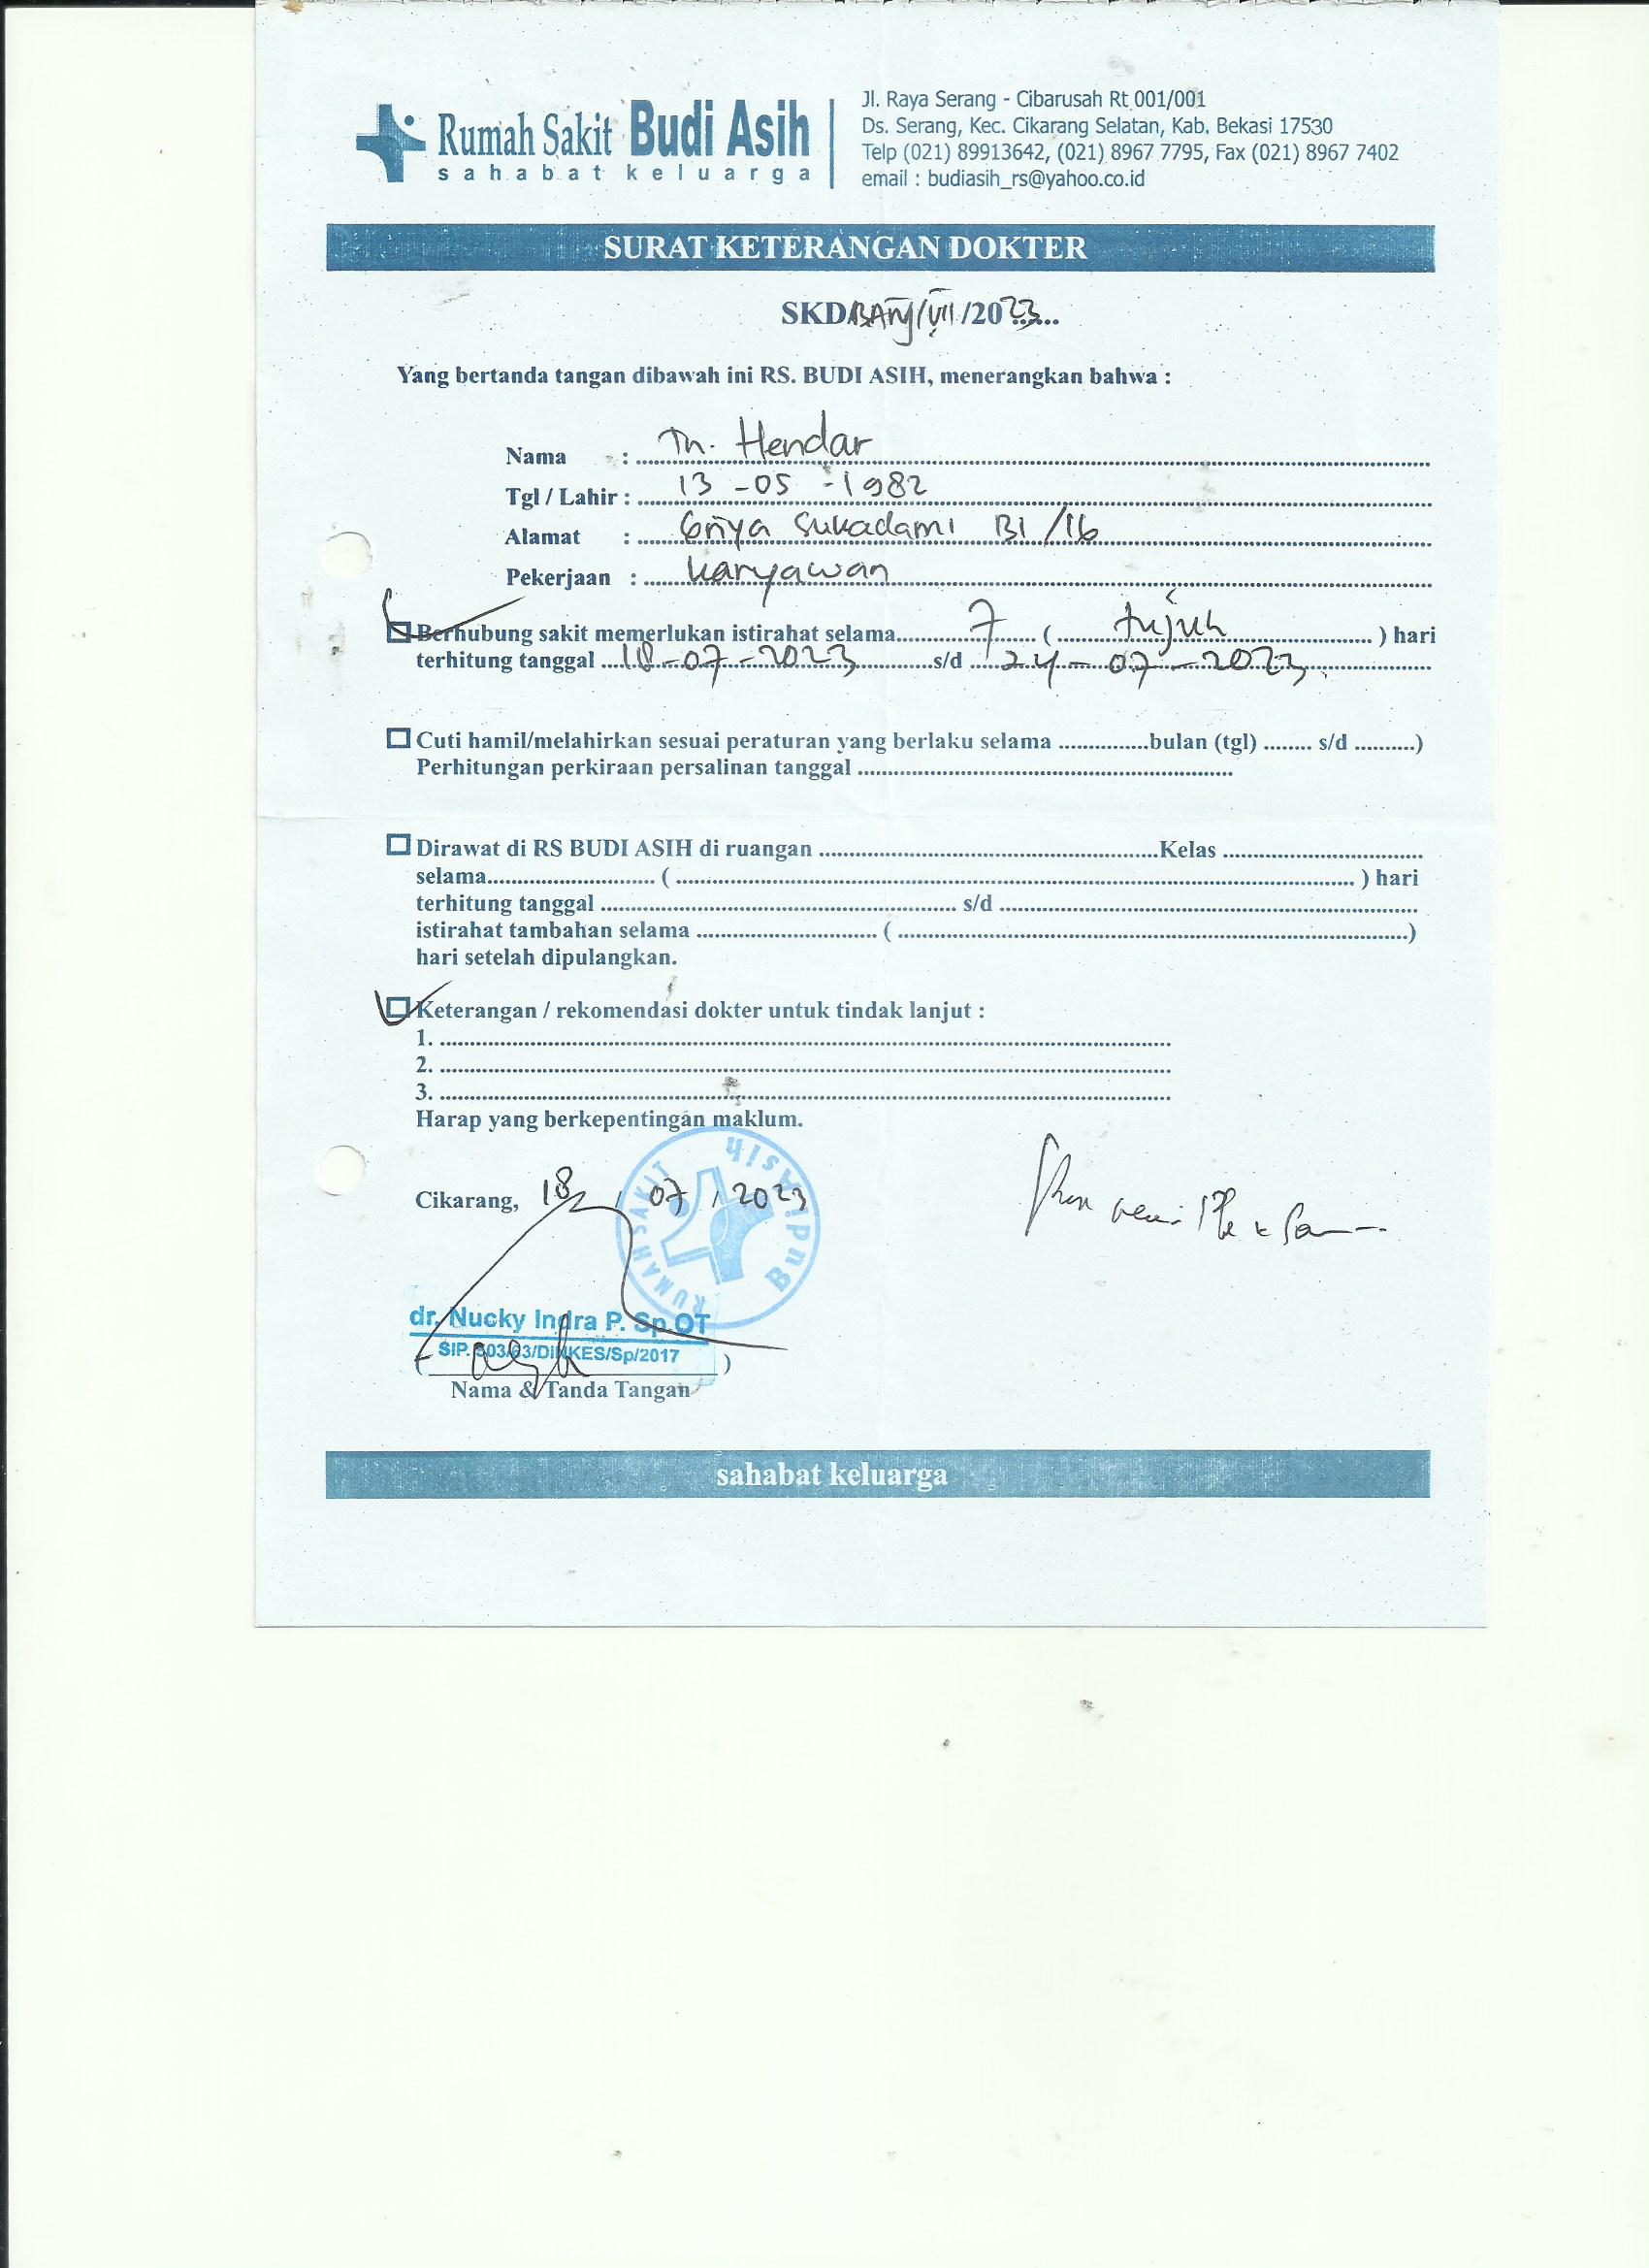 Rumah Sakit Budi Asih
sahabat keluarga
Jl. Raya Serang - Cibarusah Rt 001/001
Ds. Serang, Kec. Cikarang Selatan, Kab. Bekasi 17530
Telp (021) 89913642, (021) 8967 7795, Fax (021) 8967 7402
email : budiasih_rs@yahoo.co.id
SURAT KETERANGAN DOKTER
SKD /VII/2023
Yang bertanda tangan dibawah ini RS. BUDI ASIH, menerangkan bahwa :
Nama : Tn. Hendar
Tgl / Lahir : 13 - 05 - 1982
Alamat : Griya Sukadami B1 /16
Pekerjaan : Karyawan
Berhubung sakit memerlukan istirahat selama 7 ( tujuh ) hari
terhitung tanggal 18-07-2023 s/d 24-07-2023
Cuti hamil/melahirkan sesuai peraturan yang berlaku selama ..............bulan (tgl) ........ s/d ..........)
Perhitungan perkiraan persalinan tanggal ..........
Dirawat di RS BUDI ASIH di ruangan ..........Kelas ..........
selama.......... ( .......... ) hari
terhitung tanggal .......... s/d ..........
istirahat tambahan selama .......... ( ..........)
hari setelah dipulangkan.
Keterangan / rekomendasi dokter untuk tindak lanjut :
1. ..........
2. ..........
3. ..........
Harap yang berkepentingan maklum.
Cikarang, 18 / 07 / 2023
RUMAH SAKIT Budi Asih
dr. Nucky Indra P. Sp.OT
SIP. 503/63/DINKES/Sp/2017
( )
Nama & Tanda Tangan
sahabat keluarga